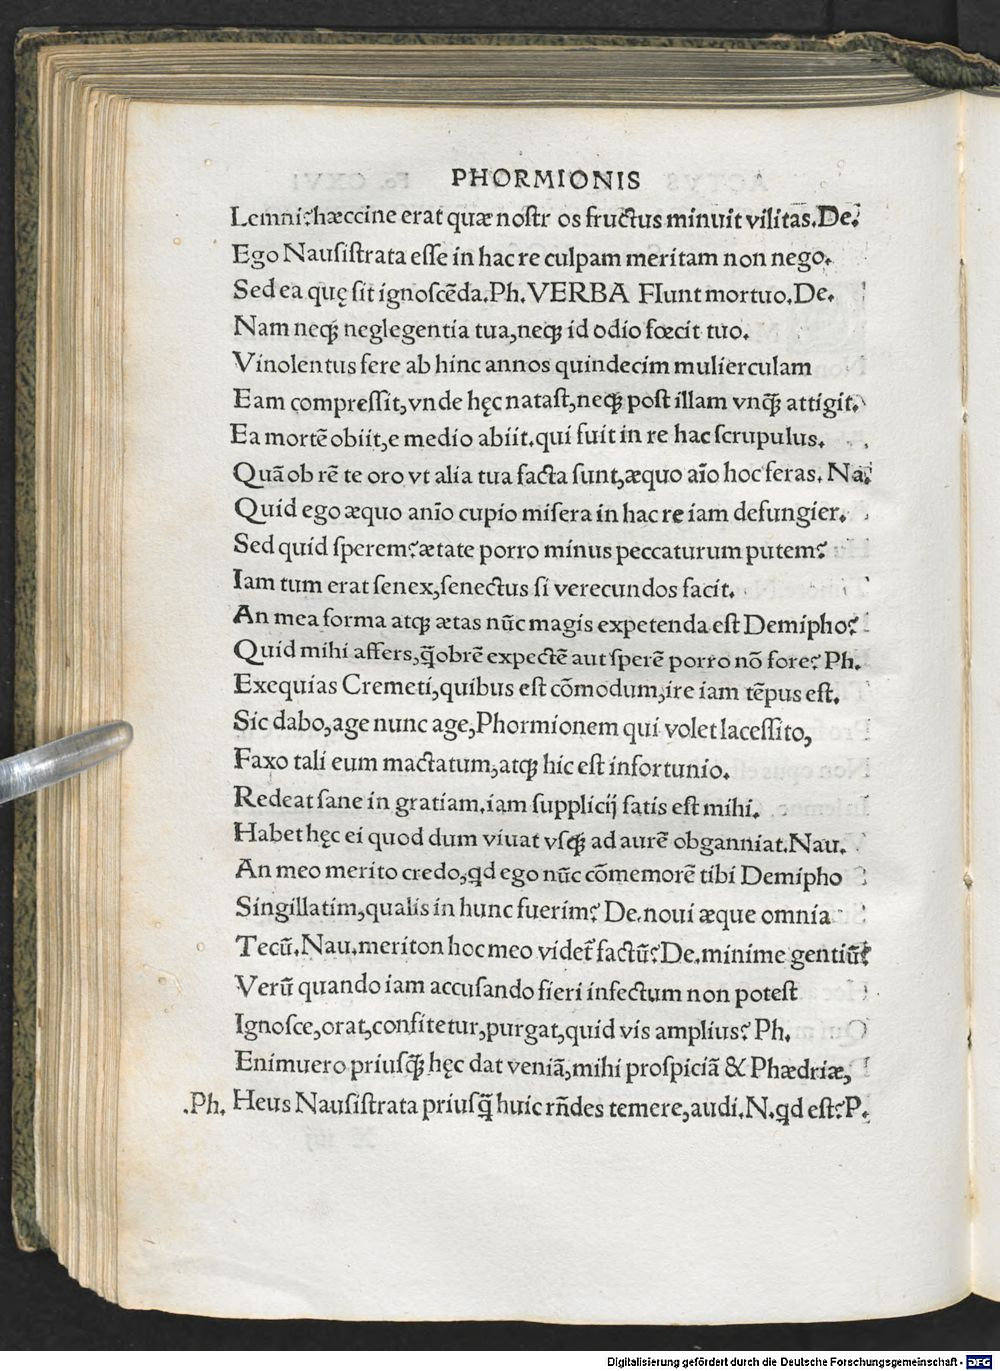 PHORMIONIS
Lemni?hæccine erat quæ noſtr os fructus minuit vilitas.De.
Ego Nauſiſtrata eſſe in hac re culpam meritam non nego.
Sed ea quę ſit ignoſcēda.Ph.VERBA FIunt mortuo.De.
Nam neqꝫ neglegentia tua,neqꝫ id odio fœcit tuo.
Vinolentus fere ab hinc annos quindecim mulierculam
Eam compreſſit,vnde hęc nataſt,neqꝫ poſt illam vnq̃ꝫ attigit.
Ea mortē obiit,e medio abiit.qui fuit in re hac ſcrupulus.
Quā ob rē te oro vt alia tua facta ſunt,æquo aīo hoc feras. Na.
Quid ego æquo anīo cupio miſera in hac re iam defungier.
Sed quid ſperem?ætate porro minus peccaturum putem?
Iam tum erat ſenex,ſenectus ſi verecundos facit.
An mea forma atqꝫ ætas nūc magis expetenda eſt Demipho?
Quid mihi affers,q̃obrē expectē aut ſperē porro nō fore? Ph.
Exequias Cremeti,quibus eſt cōmodum,ire iam tēpus eſt.
Sic dabo,age nunc age,Phormionem qui volet laceſſito,
Faxo tali eum mactatum,atqꝫ hic eſt infortunio.
Redeat ſane in gratiam.iam ſupplicij ſatis eſt mihi.
Habet hęc ei quod dum viuat vſqꝫ ad aurē obganniat.Nau.
An meo merito credo,qd ego nūc cōmemorē tibi Demipho
Singillatim,qualis in hunc fuerim? De.noui æque omnia
Tecū.Nau.meriton hoc meo videt᷑ factū?De.minime gentiū?
Verū quando iam accuſando fieri infectum non poteſt
Ignoſce,orat,confitetur,purgat,quid vis amplius? Ph.
Enimuero priuſq̃ꝫ hęc dat veniā,mihi proſpiciā & Phædriæ,
.Ph. Heus Nauſiſtrata priuſq̃ huic rñdes temere,audi.N.qd eſt?P.
Digitalisierung gefördert durch die Deutsche Forschungsgemeinschaft - DFG